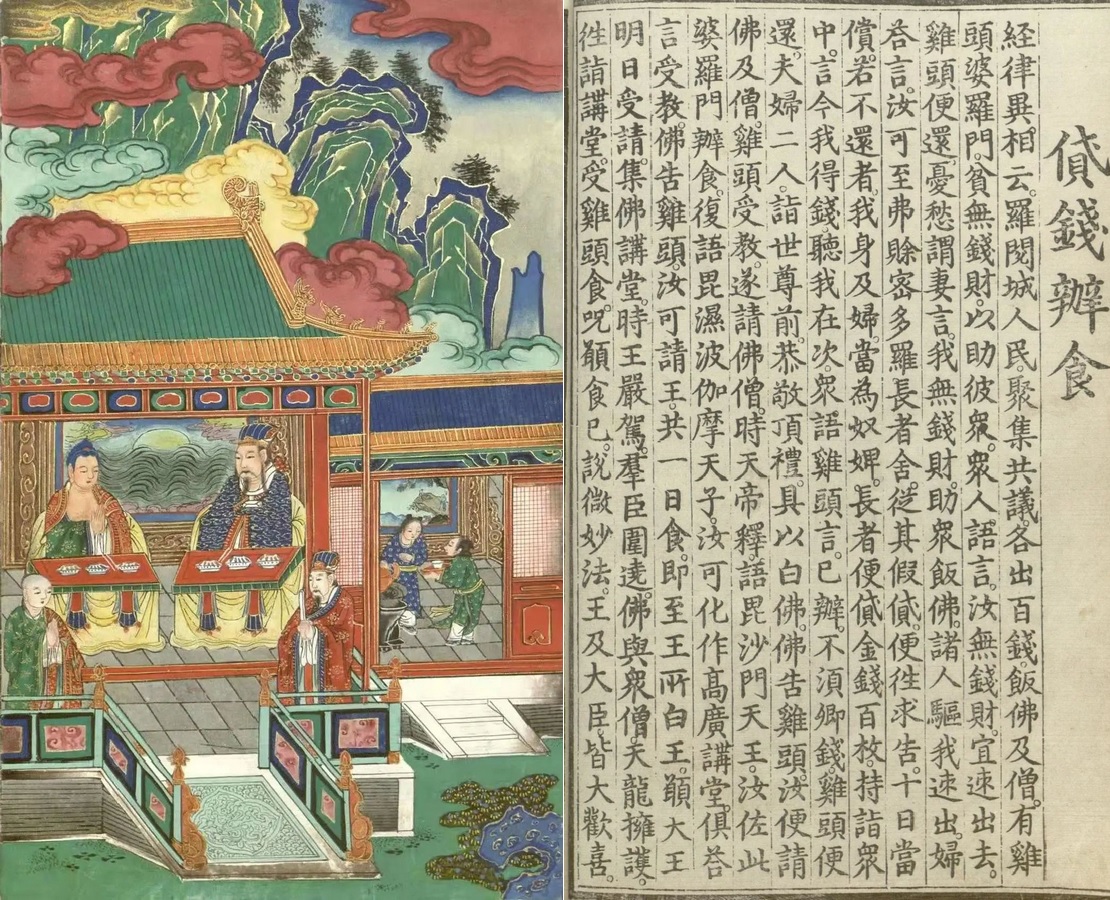 貸錢辦食
経律異相云。羅閱城人民。聚集共議。各出百錢。飯佛及僧。有雞
頭婆羅門。貧無錢財。以助彼衆。衆人語言。汝無錢財。宜速出去。
雞頭便還。憂愁謂妻言。我無錢財。助衆飯佛。諸人驅我速出。婦
荅言。汝可至弗賖宻多羅長者舍。從其假貸。便徃求告。十日當
償。若不還者。我身及婦。當為奴婢。長者便貸金錢百枚。持詣衆
中。言今我得錢。聽我在次。衆語雞頭言。已辦。不湏卿錢。雞頭便
還。夫婦二人。詣世尊前。恭敬頂禮。具以白佛。佛告雞頭。汝便請
佛及僧。雞頭受教。遂請佛僧。時天帝釋語毘沙門天王。汝佐此
婆羅門辦食。復語毘濕波伽摩天子。汝可化作高廣講堂。俱荅
言受教。佛告雞頭。汝可請王。共一日食。即至王所白王。願大王
明日受請。集佛講堂。時王嚴駕。羣臣圍遶。佛與衆僧。天龍擁護。
徃詣講堂。受雞頭食。呪願食已。說微妙法。王及大臣。皆大歡喜。